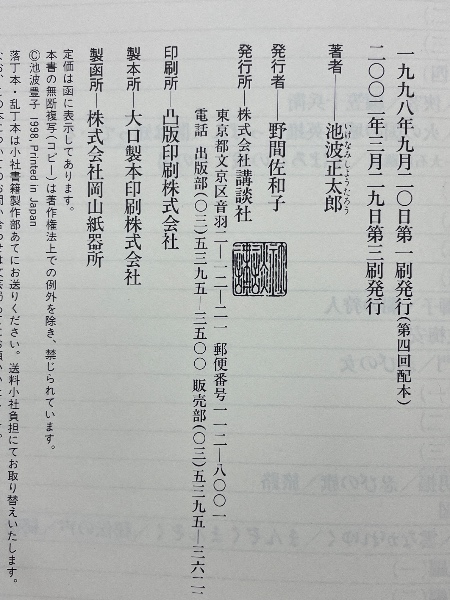 一九九八年九月二〇日第一刷発行(第四回配本)
二〇〇二年三月二九日第三刷発行
著者―池波正太郎
いけなみしょうたろう
発行者―野間佐和子
発行所―株式会社講談社
東京都文京区音羽二―一二―二一 郵便番号一一二―八〇〇一
電話 出版部(〇三)五三九五―三五〇〇 販売部(〇三)五三九五―三六二
印刷所―凸版印刷株式会社
製本所―大口製本印刷株式会社
製函所―株式会社岡山紙器所
定価は函に表示してあります。
本書の無断複写(コピー)は著作権法上での例外を除き、禁じられています。
©池波豊子 1998, Printed in Japan
落丁本・乱丁本は小社書籍製作部あてにお送りください。送料小社負担にてお取り替えいたします。